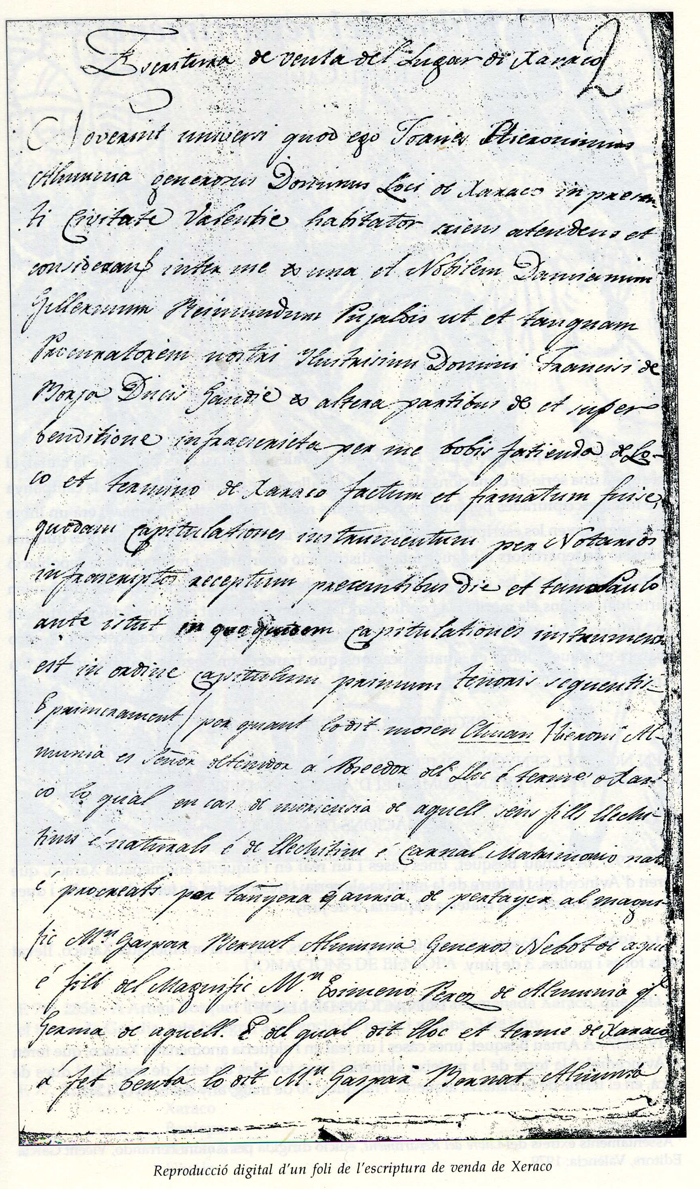 Escritura de venta del Lugar de Xaraco
2
Noverint universi quod ego Joanes Hieronimus
Almunia generosus Dominus Loci de Xaraco in presen-
ti Civitate Valentie habitator sciens atendens et
considerans inter me ex una et Nobilem Damianum
Guillermum Reimundum Pujadas ut et tanquam
Procuratorem nostri Ilustrissimi Domini Francisci de
Borja Ducis Gandie ex altera partibus de et super
venditione infrascrieta per me bobis fatienda de Lo-
co et termino de Xaraco factum et firmatum fuise
quodam capitulationes instrumentum per Notarios
infrascriptos receptum presentibus die et tam Paulo
ante istut in quo quidem capitulationes instrumen
est in ordine capitulum primum tenoris sequentis
E primerament per quant lo dit mosen Hieroni Al-
munia es señor detenidor á Poseedor del Lloc é terme de Xara-
co lo qual en cas de morir sia de aquell sens fills llechi-
tims é naturals é de llechitim é carnal Matrimonio nats
é procreats per tañyera é auria de pertayer al magni
fic Mn. Gaspar Bernat Almunia Generos Nebot de aque
é fill del Magnific Mn. Eximeno Perez de Almunia q.
Germa de aquell. E del qual dit lloc et terme de Xaraco
á fet benta lo dit Mn. Gaspar Bernat Almunia
Reproducció digital d'un foli de l'escriptura de venda de Xeraco